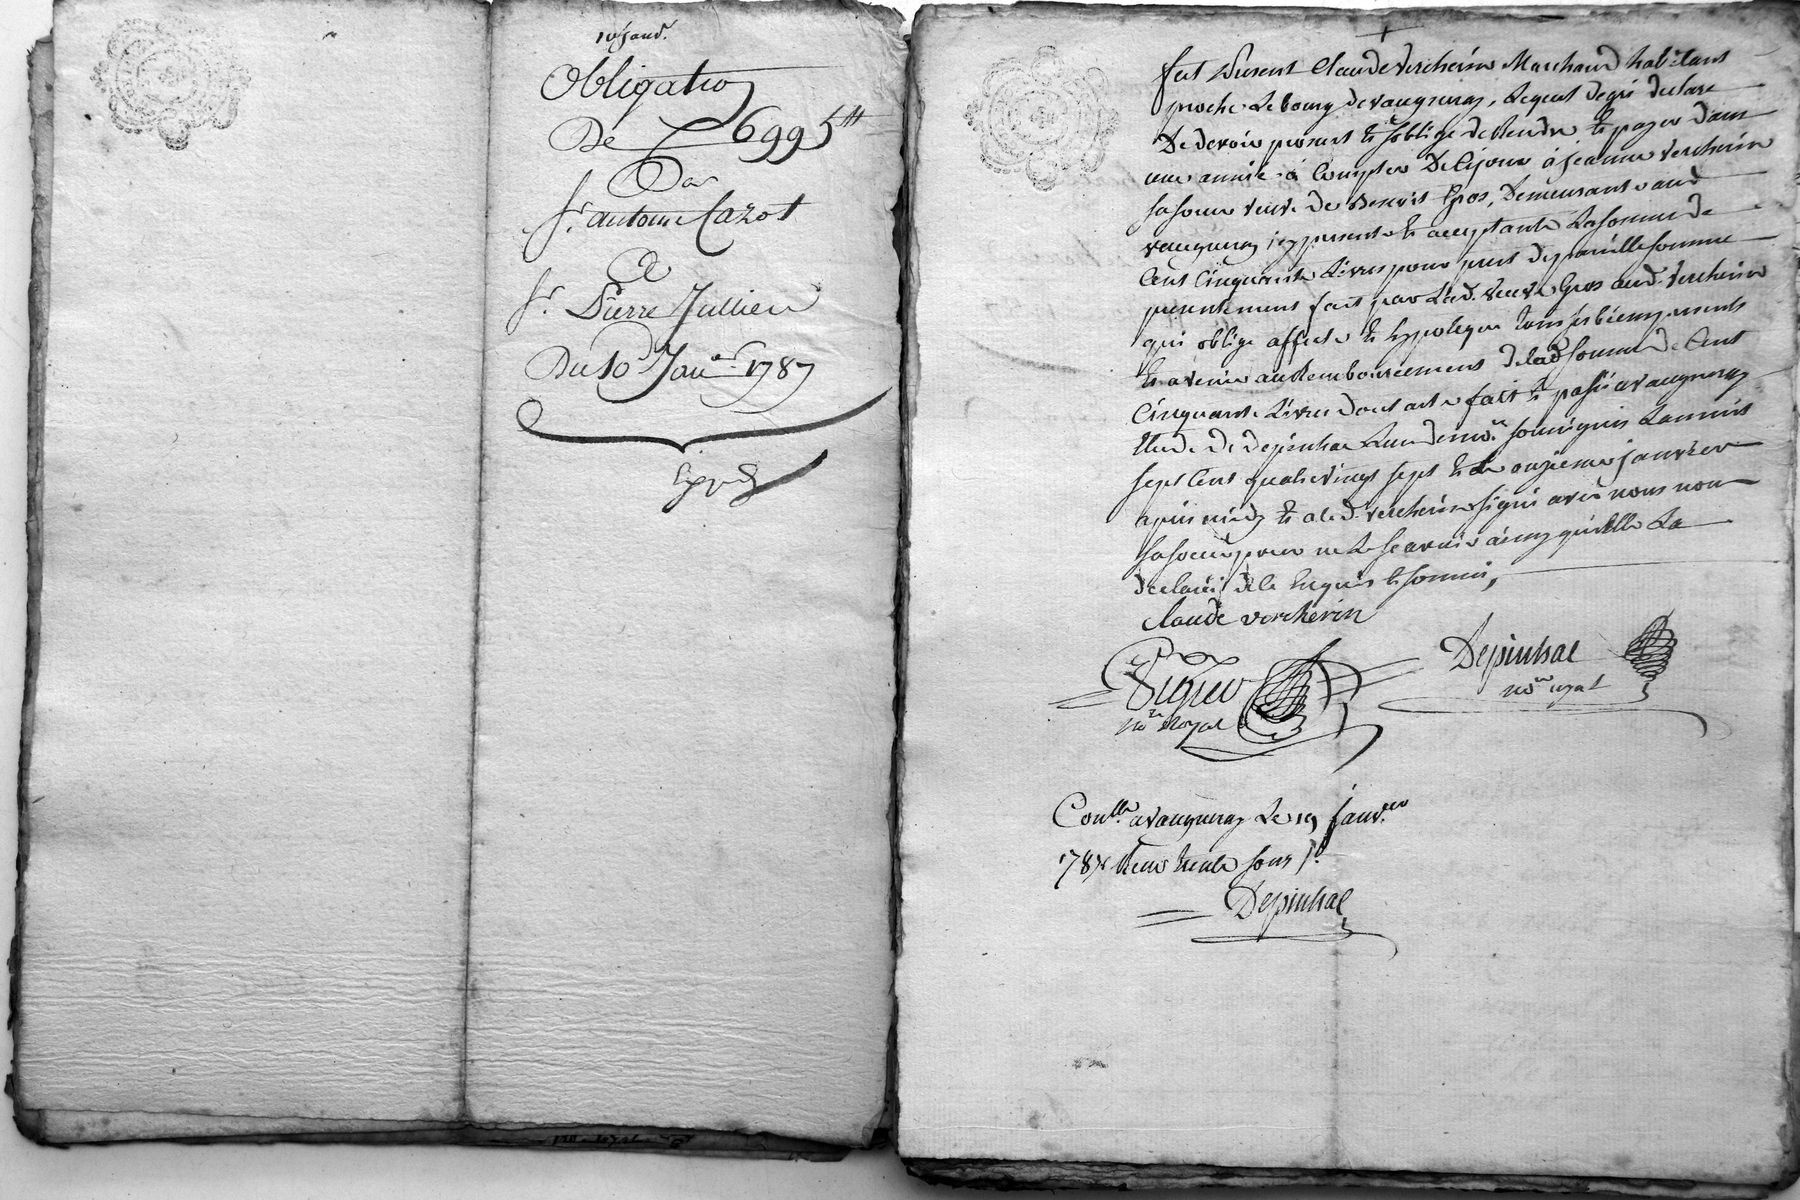 10 janv.r
Obligation
De 6995 ₶
Par
Sr. antoine Cazot
A
Sr. Pierre Jullien
Du 10 Jan.er 1787
Expd
fut present Claude Vercherin Marchand habitant
proche le bourg de vaugneray, lequel de gré declare
De devoir promet et s'oblige de Rendre et payer dans
une année à Compter De Ce jour à jeanne Vercherin
sa soeur veuve de Benoit Gros, Demeurant aud
vaugneray icy presente et acceptante La somme de
Cent Cinquante Livres pour prest de pareille somme
presentement fait par Lad. veuve Gros aud. Vercherin
qui oblige affecte et hypoteque tous ses biens presents
et avenir au Remboursement de lad somme de Cent
Cinquante Livres dont acte fait et passé a vaugneray
Etude De Depinhac L'un de no.res soussignés L'an mil
sept Cent quatrevingt sept et Le onzieme janvier
apres midy et a led. Vercherin signé avec nous non
sa soeur pour ne le scavoir ainsy qu'elle L'a
declaré de ce Enquis et sommé,
Claude vercherin
Depinhac
no.re royal
no.re Royal
Con.llé a vaugneray Le 19 janv.er
1787 Reçu trente sous s.d
Depinhac